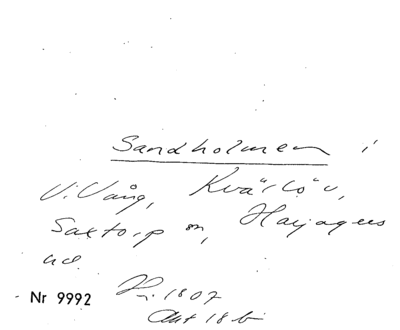 Sandholmen i
V. Vång, Kvärlöv,
Saxtorp sn, Harjagers
hd.
Nr 9992
1807
Akt 18 b